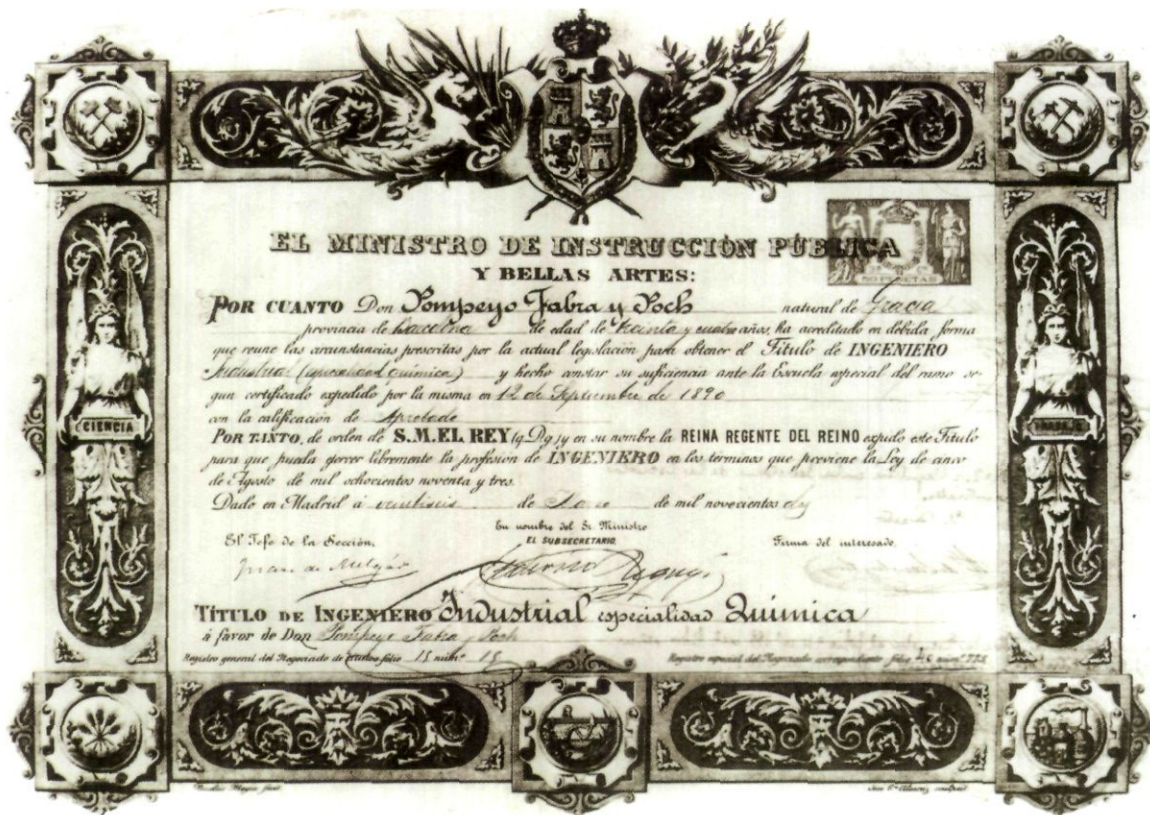 EL MINISTRO DE INSTRUCCIÓN PÚBLICA
50 PESETAS
Y BELLAS ARTES:
POR CUANTO Don Pompeyo Fabra y Poch natural de Gracia
provincia de Barcelona de edad de treinta y cuatro años, ha acreditado en debida forma
que reune las circunstancias prescritas por la actual legislación para obtener el Título de INGENIERO
Industrial (especialidad química) y hecho constar su suficiencia ante la Escuela especial del ramo se-
gun certificado expedido por la misma en 12 de Septiembre de 1890
con la calificación de Aprobado
POR TANTO, de orden de S.M. EL REY (q. D. g.) y en su nombre la REINA REGENTE DEL REINO expido este Título
para que pueda ejercer libremente la profesión de INGENIERO en los terminos que previene la Ley de cinco
de Agosto de mil ochocientos noventa y tres.
CIENCIA
TRABAJO
Dado en Madrid á veintiseis de de mil novecientos dos
En nombre del Sr. Ministro
El Jefe de la Sección, EL SUBSECRETARIO Firma del interesado,
Juan de
TÍTULO DE INGENIERO Industrial especialidad Química
á favor de Don Pompeyo Fabra y Poch
Registro general del Negociado de títulos folio 15 núm.º 15 Registro especial del Negociado correspondiente folio núm.º